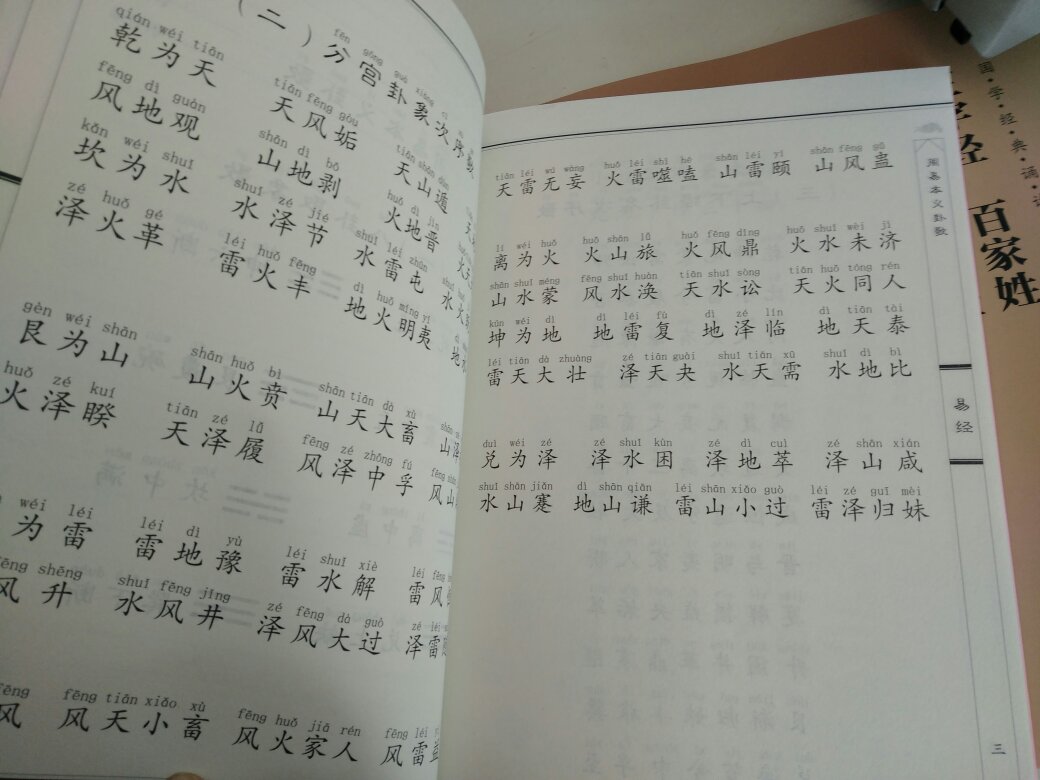 （二）分宫卦象次序
qián wéi tiān tiān fēng gòu tiān shān dùn
乾为天 天风姤 天山遁
fēng dì guān shān dì bō huǒ dì jìn
风地观 山地剥 火地晋
kǎn wéi shuǐ shuǐ zé jié shuǐ léi zhūn
坎为水 水泽节 水雷屯
zé huǒ gé léi huǒ fēng dì huǒ míng yí
泽火革 雷火丰 地火明夷
gèn wéi shān shān huǒ bì shān tiān dà xù
艮为山 山火贲 山天大畜
huǒ zé kuí tiān zé lǚ fēng zé zhōng fú
火泽睽 天泽履 风泽中孚 风山
wéi léi léi dì yù léi shuǐ xiè léi
为雷 雷地豫 雷水解 雷风
fēng shēng shuǐ fēng jǐng zé fēng dà guò zé léi
风升 水风井 泽风大过 泽雷
fēng fēng tiān xiǎo xù fēng huǒ jiā rén fēng léi
风 风天小畜 风火家人 风雷益
tiān léi wú wàng huǒ léi shì hé shān léi yí shān fēng gǔ
天雷无妄 火雷噬嗑 山雷颐 山风蛊
lí wéi huǒ huǒ shān lǚ huǒ fēng dǐng huǒ shuǐ wèi jì
离为火 火山旅 火风鼎 火水未济
shān shuǐ méng fēng shuǐ huàn tiān shuǐ sòng tiān huǒ tóng rén
山水蒙 风水涣 天水讼 天火同人
kūn wéi dì dì léi fù dì zé lín dì tiān tài
坤为地 地雷复 地泽临 地天泰
léi tiān dà zhuàng zé tiān guài shuǐ tiān xū shuǐ dì bǐ
雷天大壮 泽天夬 水天需 水地比
duì wéi zé zé shuǐ kùn zé dì cuì zé shān xián
兑为泽 泽水困 泽地萃 泽山咸
shuǐ shān jiǎn dì shān qiān léi shān xiǎo guò léi zé guī mèi
水山蹇 地山谦 雷山小过 雷泽归妹
周易本义卦歌
易经
三
国·学·经·典·诵
百家姓